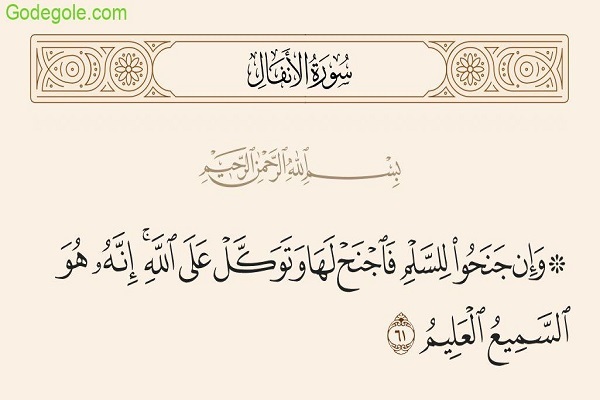 Godegole.com
سُورَةُ الأَنفَالِ
بِسْمِ ٱللَّهِ ٱلرَّحْمَٰنِ ٱلرَّحِيمِ
۞ وَإِن جَنَحُوا۟ لِلسَّلْمِ فَٱجْنَحْ لَهَا وَتَوَكَّلْ عَلَى ٱللَّهِ ۚ إِنَّهُۥ هُوَ
ٱلسَّمِيعُ ٱلْعَلِيمُ ٦١